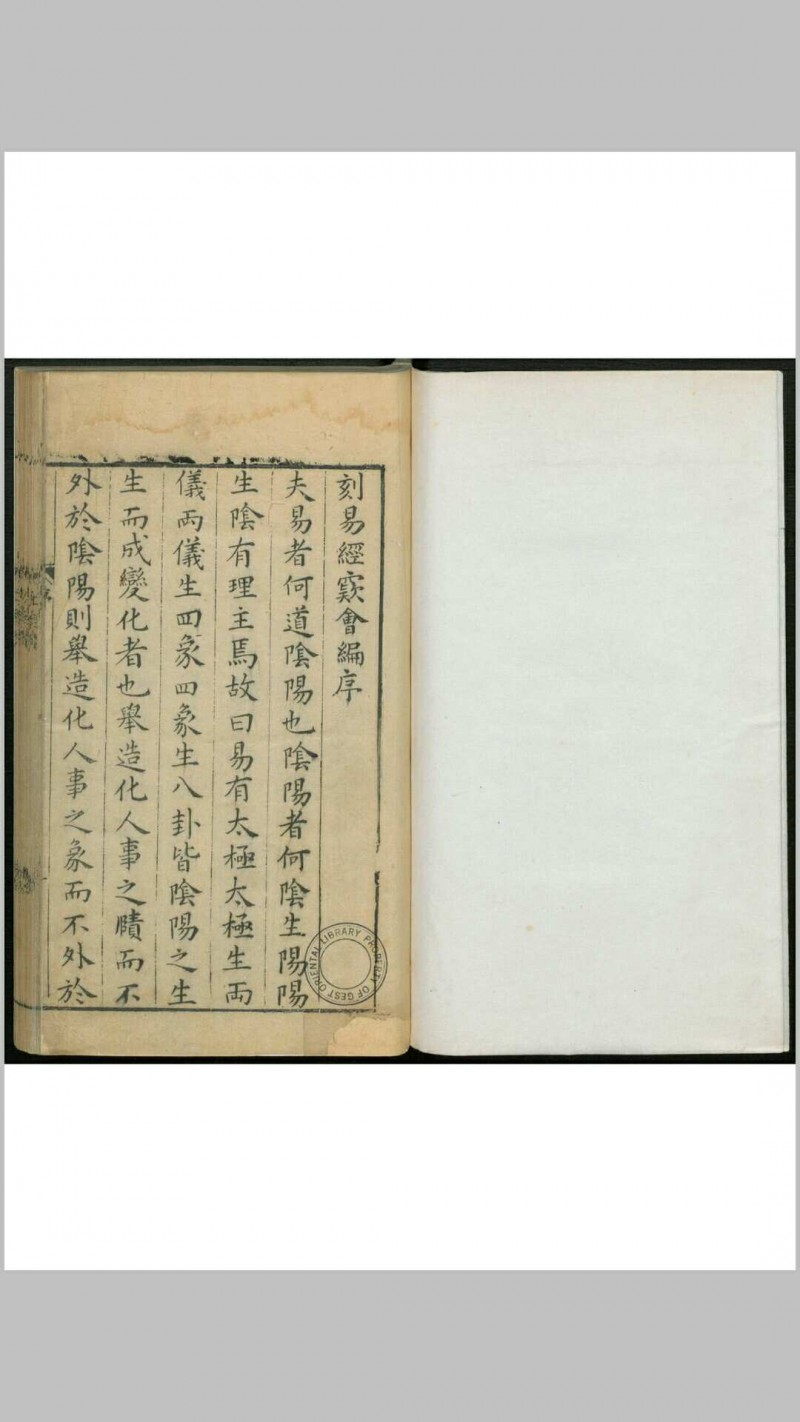 刻易經窽會編序
夫易者何道陰陽也陰陽者何陰生陽陽
生陰有理主焉故曰易有太極太極生兩
儀兩儀生四象四象生八卦皆陰陽之生
生而成變化者也舉造化人事之賾而不
外於陰陽則舉造化人事之象而不外於
LIBRARY PROPERTY OF GEST ORIENTAL